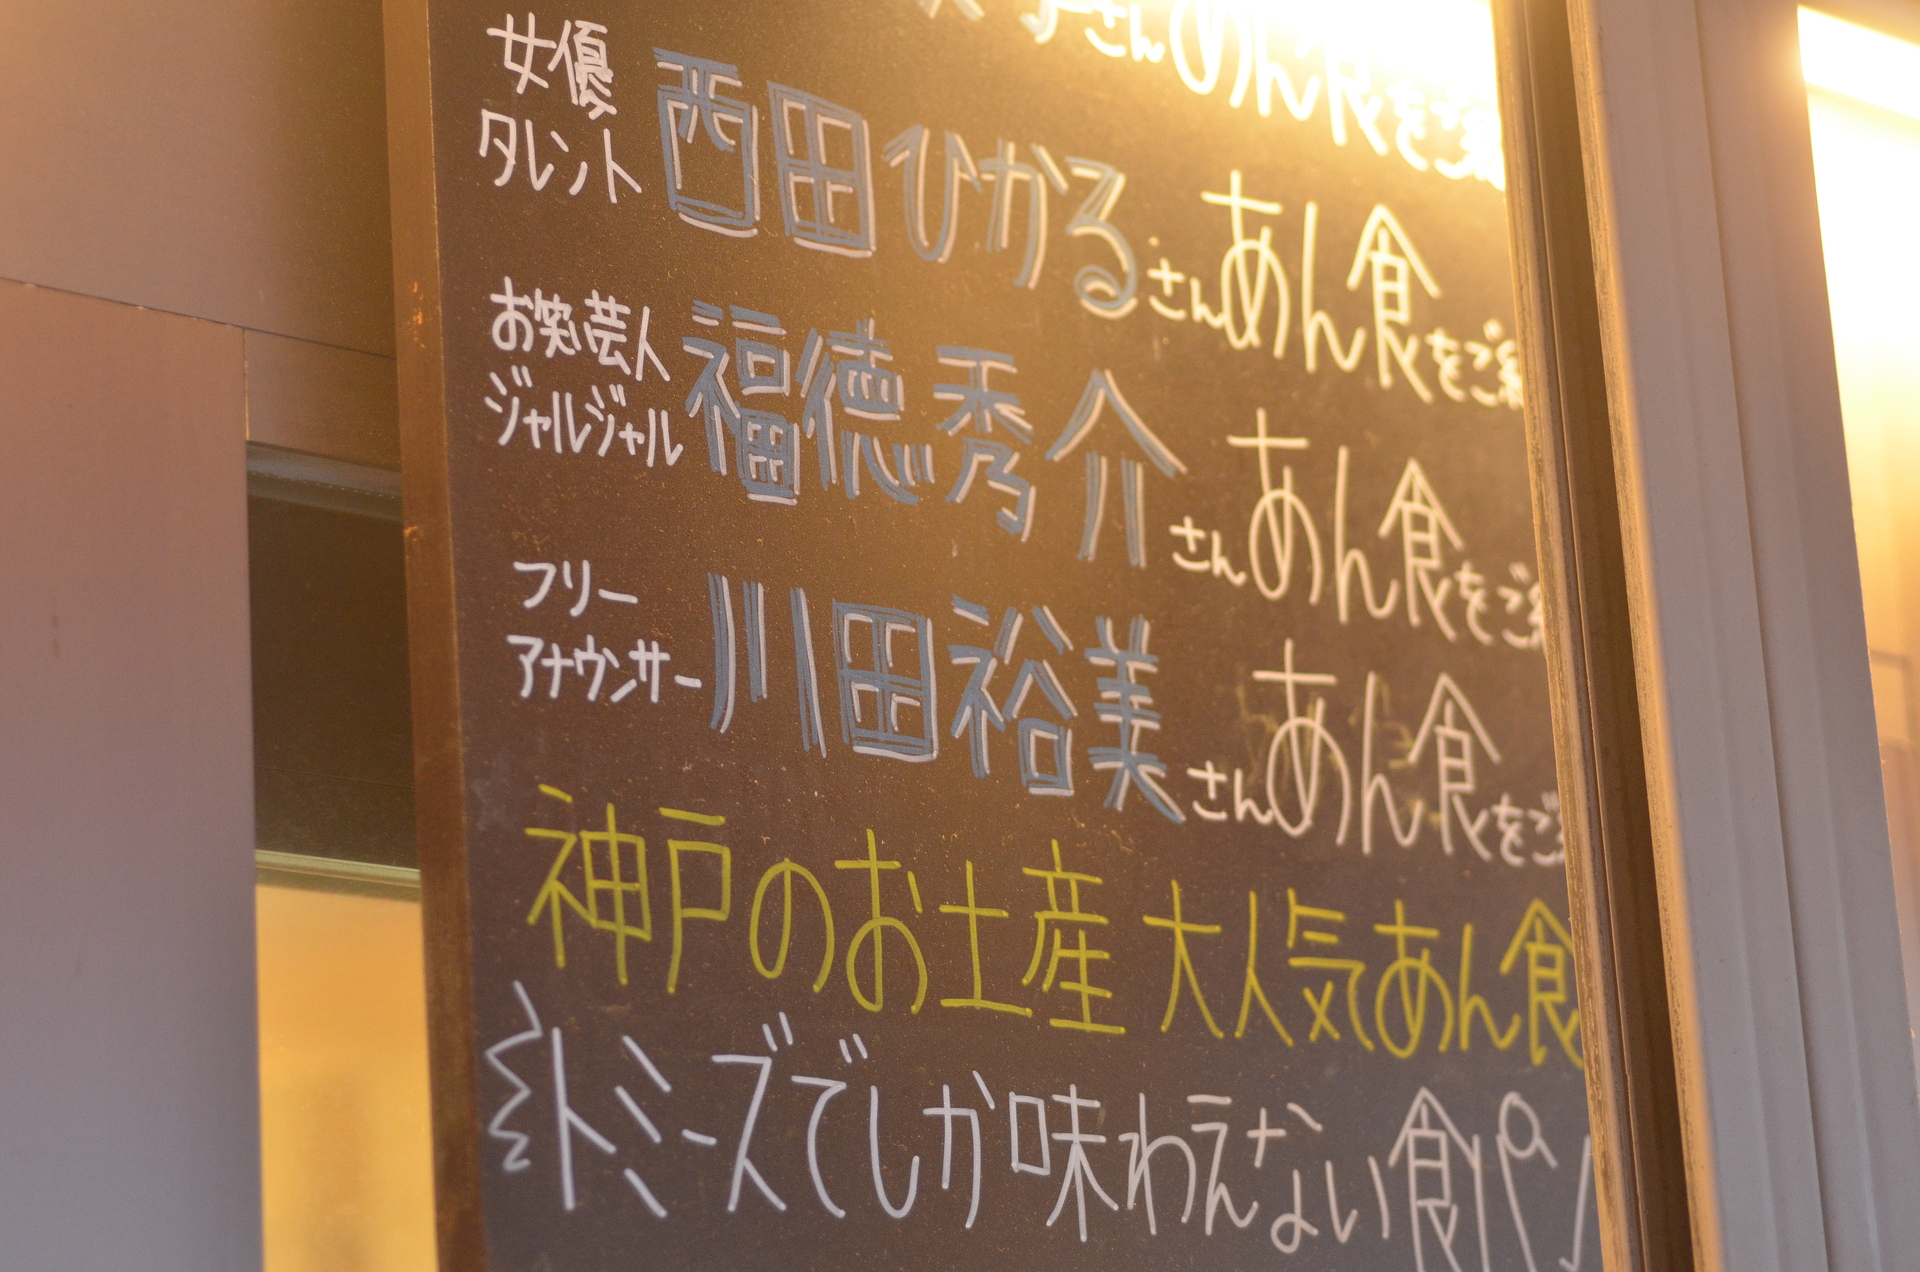 さんあん食をご
女優
タレント
西田ひかるさんあん食をご
お笑い芸人
ジャルジャル
福徳秀介さんあん食をご
フリー
アナウンサー
川田裕美さんあん食をご
神戸のお土産 大人気あん食
トミーズでしか味わえない食パン